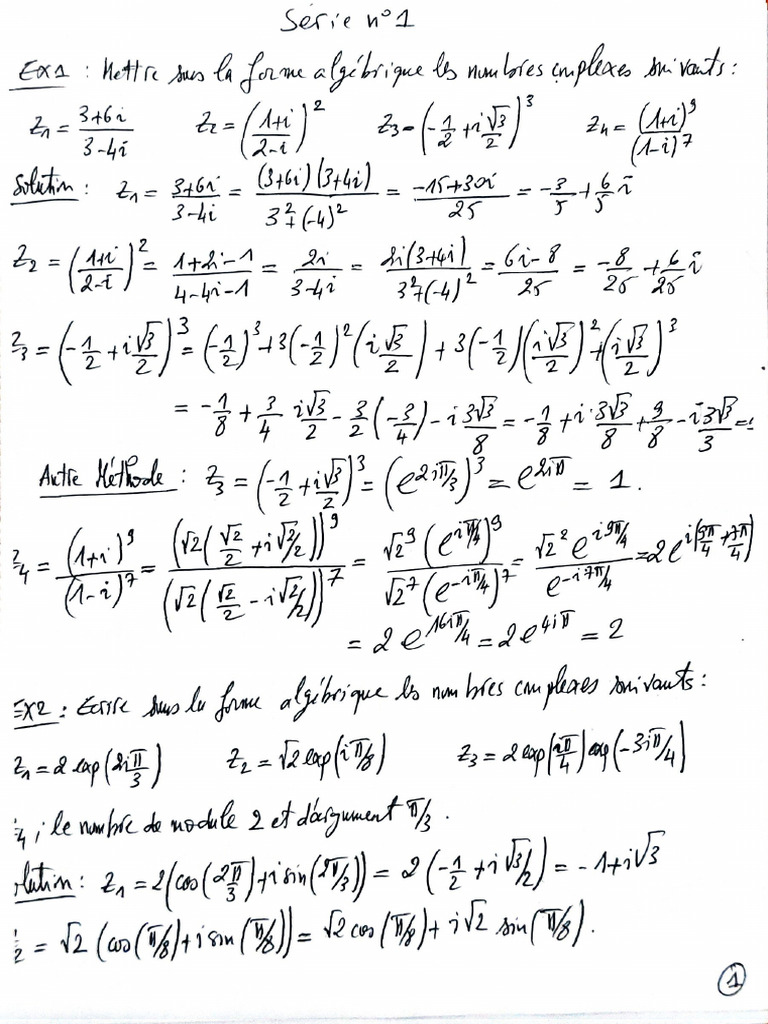 Série n°1
EX1 : Mettre sous la forme algébrique les nombres complexes suivants :
Z₁ = (3+6i)/(3-4i)   Z₂ = ((1+i)/(2-i))²   Z₃ = (-1/2 + i√3/2)³   Z₄ = (1+i)⁹/(1-i)⁷
Solution : Z₁ = (3+6i)/(3-4i) = (3+6i)(3+4i)/(3²+(-4)²) = (-15+30i)/25 = -3/5 + 6/5 i
Z₂ = ((1+i)/(2-i))² = (1+2i-1)/(4-4i-1) = 2i/(3-4i) = 2i(3+4i)/(3²+(-4)²) = (6i-8)/25 = -8/25 + 6/25 i
Z₃ = (-1/2 + i√3/2)³ = (-1/2)³ + 3(-1/2)²(i√3/2) + 3(-1/2)(i√3/2)² + (i√3/2)³
= -1/8 + 3/4 i√3/2 - 3/2(-3/4) - i 3√3/8 = -1/8 + i·3√3/8 + 9/8 - i3√3/3 =
Autre Méthode : Z₃ = (-1/2 + i√3/2)³ = (e^(2iπ/3))³ = e^(2iπ) = 1.
Z₄ = (1+i)⁹/(1-i)⁷ = (√2(√2/2 + i√2/2))⁹/(√2(√2/2 - i√2/2))⁷ = √2⁹(e^(iπ/4))⁹/(√2⁷(e^(-iπ/4))⁷) = √2² e^(i9π/4)/e^(-i7π/4) = 2e^(i(9π/4+7π/4))
= 2e^(16iπ/4) = 2e^(4iπ) = 2
EX2 : Ecrire sous la forme algébrique les nombres complexes suivants :
Z₁ = 2exp(2iπ/3)   Z₂ = √2exp(iπ/8)   Z₃ = 2exp(iπ/4)exp(-3iπ/4)
4, le nombre de module 2 et d'argument π/3.
lution : Z₁ = 2(cos(2π/3)+i sin(2π/3)) = 2(-1/2 + i√3/2) = -1+i√3
2 = √2 (cos(π/8)+i sin(π/8)) = √2 cos(π/8) + i√2 sin(π/8).
1